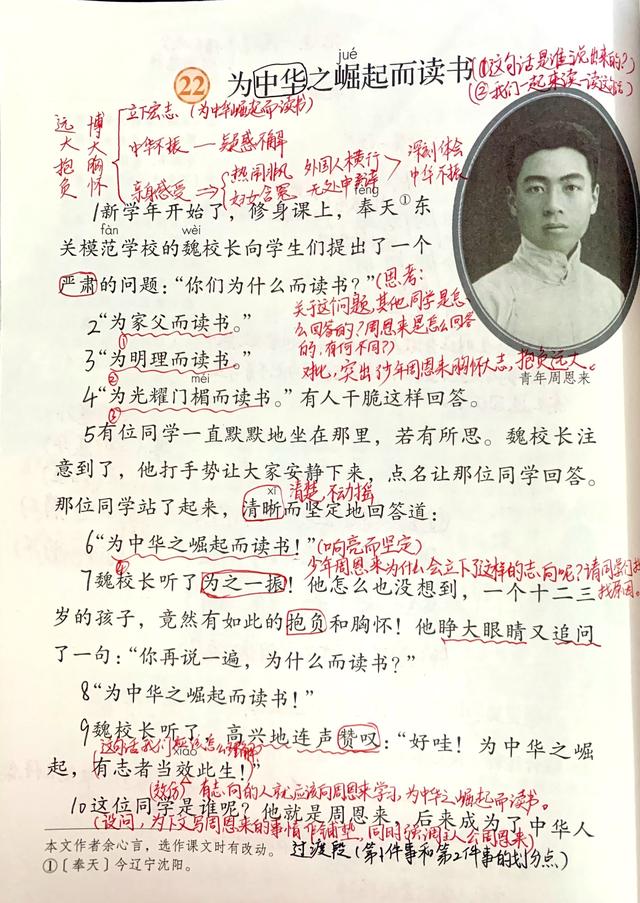 jué
22 为中华之崛起而读书
(①这句话是谁说出来的?)
(②我们一起来读一读这句话)
远大抱负
博大胸怀
立下宏志 (为中华崛起而读书)
中华不振 — 疑惑不解
亲身感受 ⇒
热闹非凡
妇女含冤
外国人横行
无处申诉
深刻体会
中华不振
fèng
1新学年开始了，修身课上，奉天①东
fàn wèi
关模范学校的魏校长向学生们提出了一个
严肃的问题：“你们为什么而读书？”
(思考:
关于这个问题,其他同学是怎
么回答的?周恩来是怎么回答
的,有何不同?)
2“为家父而读书。”
①
3“为明理而读书。”
②
对比,突出少年周恩来胸怀大志,抱负远大。
青年周恩来
méi
4“为光耀门楣而读书。”有人干脆这样回答。
③
5有位同学一直默默地坐在那里，若有所思。魏校长注
意到了，他打手势让大家安静下来，点名让那位同学回答。
xī
清楚,不动摇
那位同学站了起来，清晰而坚定地回答道：
6“为中华之崛起而读书！”
(响亮而坚定)
④
少年周恩来为什么会立下了这样的志向呢?请同学们找
找原因。
7魏校长听了为之一振！他怎么也没想到，一个十二三
岁的孩子，竟然有如此的抱负和胸怀！他睁大眼睛又追问
了一句：“你再说一遍，为什么而读书？”
8“为中华之崛起而读书！”
9魏校长听了，高兴地连声赞叹：“好哇！为中华之崛
xiào
起，有志者当效此生！”
(效仿) 有志向的人就应该向周恩来学习,为中华之崛起而读书。
10这位同学是谁呢？他就是周恩来，后来成为了中华人
(设问,为下文写周恩来的事情作铺垫,同时强调主人公周恩来)
本文作者余心言，选作课文时有改动。
过渡段(第1件事和第2件事的划分点)
①〔奉天〕今辽宁沈阳。